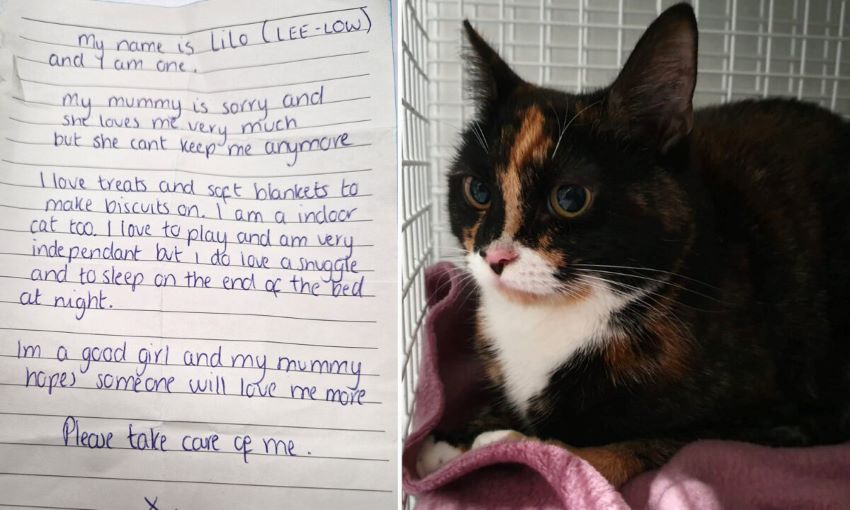 My name is Lilo (LEE-LOW)
and I am one.
My mummy is sorry and
she loves me very much
but she cant keep me anymore
I love treats and soft blankets to
make biscuits on. I am a indoor
cat too. I love to play and am very
independant but I do love a snuggle
and to sleep on the end of the bed
at night.
Im a good girl and my mummy
hopes someone will love me more
Please take care of me.
x